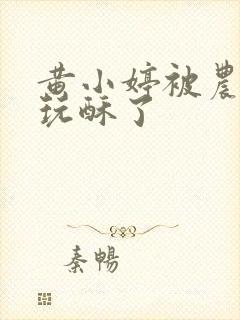 黄小婷被農
玩酥了
秦暢